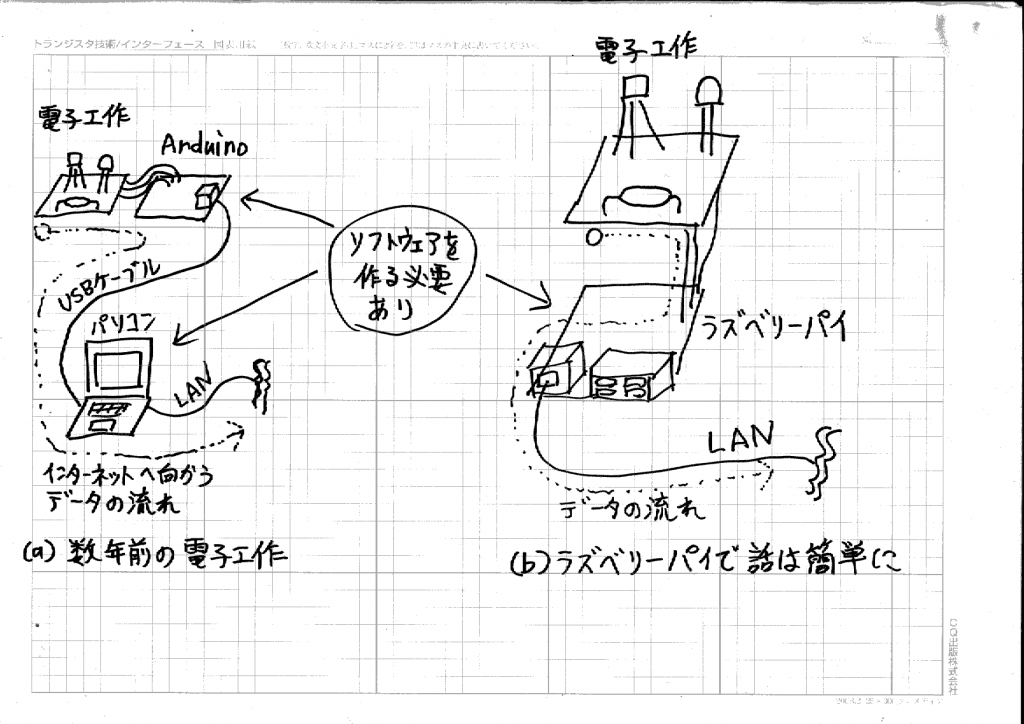 トランジスタ技術/インターフェース 図表用紙
電子工作
Arduino
USBケーブル
パソコン
LAN
インターネットへ向かう
データの流れ
(a) 数年前の電子工作
ソフトウェアを
作る必要
あり
電子工作
ラズベリーパイ
LAN
データの流れ
(b) ラズベリーパイで話は簡単に
CQ出版株式会社